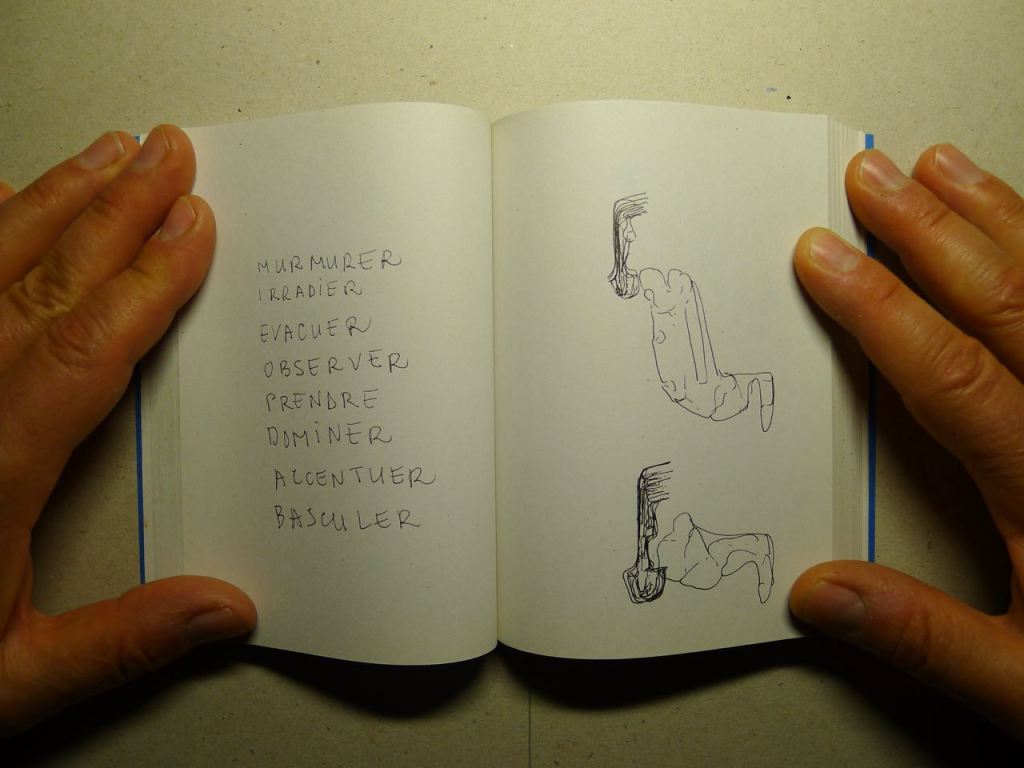 MURMURER
IRRADIER
EVACUER
OBSERVER
PRENDRE
DOMINER
ACCENTUER
BASCULER